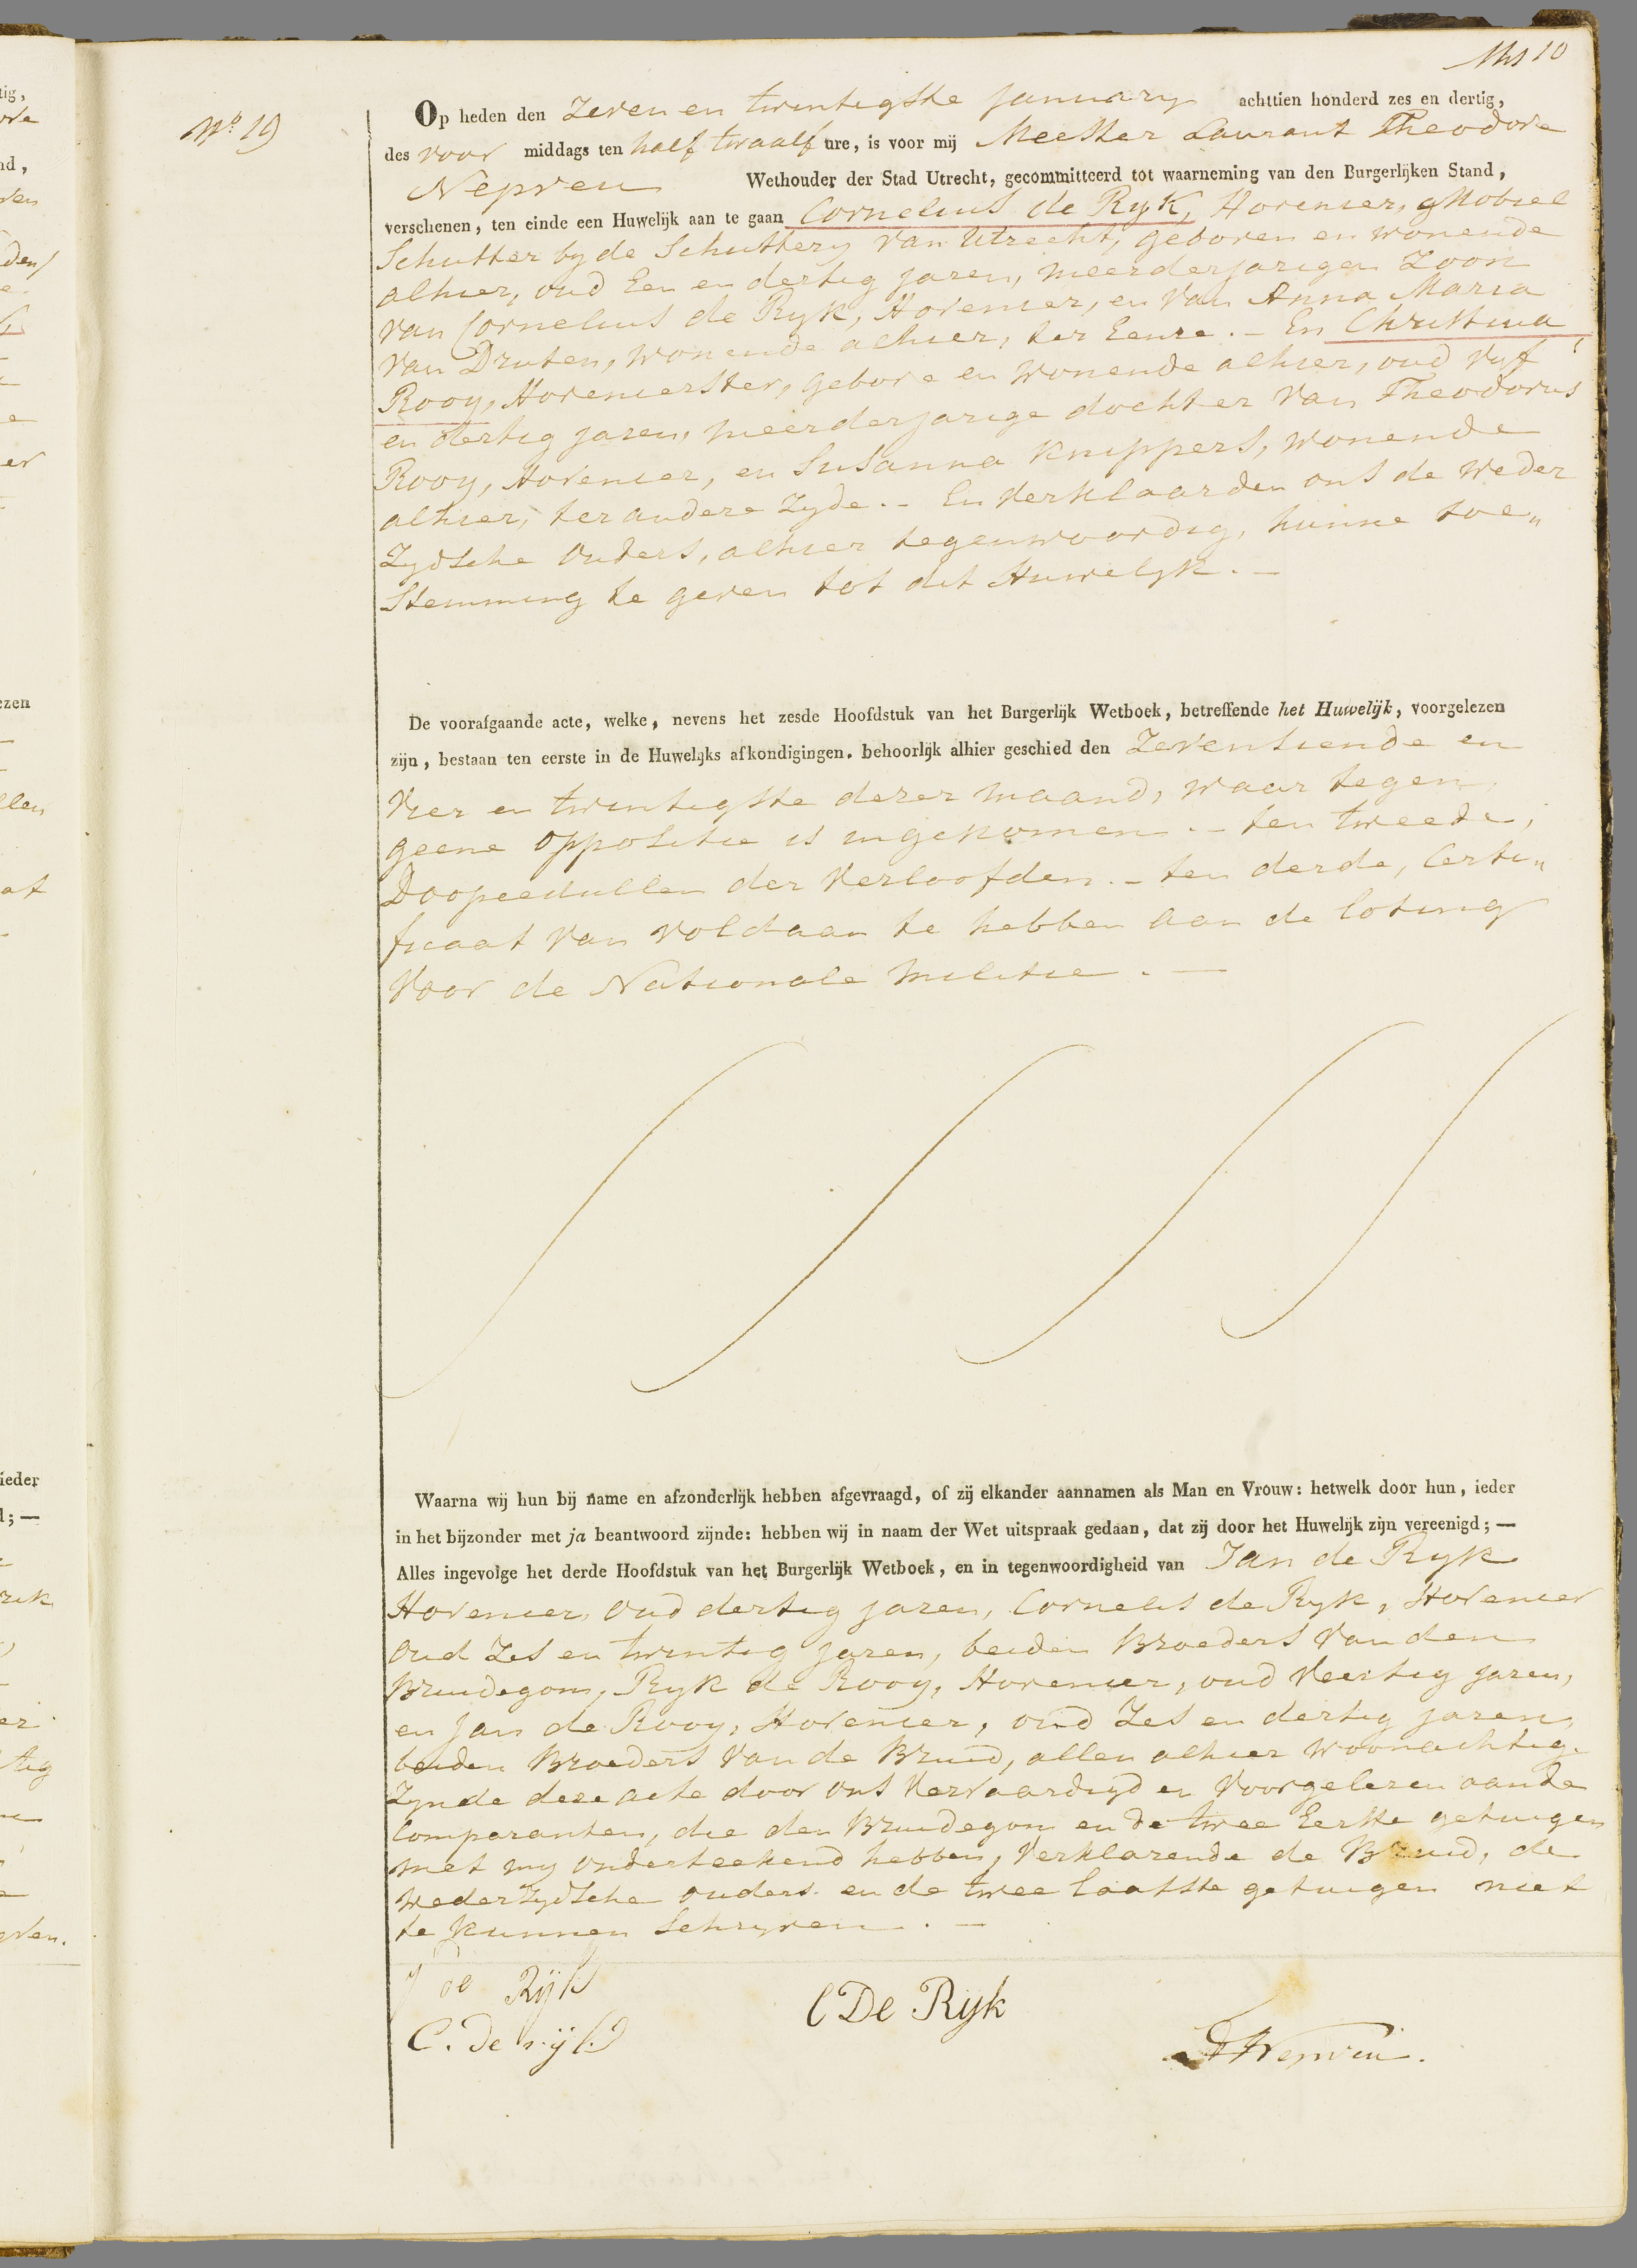 10
No 19
Op heden den Zeven en twintigste January achttien honderd zes en dertig,
des voor middags ten half twaalf ure, is voor mij Meester Laurant Theodore
Nepveu Wethouder der Stad Utrecht, gecommitteerd tot waarneming van den Burgerlijken Stand,
verschenen, ten einde een Huwelijk aan te gaan Cornelius de Ryk, Hovenier, Mobiel
Schutter by de Schuttery van Utrecht, geboren en wonende
alhier, oud Een en dertig jaren, meerderjarigen Zoon
van Cornelius de Ryk, Hovenier, en van Anna Maria
van Druten, wonende alhier, ter Eenre. - En Christina
Rooy, Hovenierster, gebore en wonende alhier, oud vyf
en dertig jaren, meerderjarige dochter van Theodorus
Rooy, Hovenier, en Susanna Knippers, wonende
alhier, ter andere Zyde. - En verklaarden ons de weder
Zydsche Ouders, alhier tegenwoordig, hunne toe„
Stemming te geven tot dit Huwelyk. -
De voorafgaande acte, welke, nevens het zesde Hoofdstuk van het Burgerlijk Wetboek, betreffende het Huwelijk, voorgelezen
zijn, bestaan ten eerste in de Huwelijks afkondigingen, behoorlijk alhier geschied den Zeventiende en
Vier en twintigste dezer maand, waar tegen
geene oppositie is ingekomen. - ten tweede,
Doopcedullen der Verloofden. - ten derde, Certi„
ficaat van voldaan te hebben aan de loting
voor de Nationale Militie. -
Waarna wij hun bij name en afzonderlijk hebben afgevraagd, of zij elkander aannamen als Man en Vrouw: hetwelk door hun, ieder
in het bijzonder met ja beantwoord zijnde: hebben wij in naam der Wet uitspraak gedaan, dat zij door het Huwelijk zijn vereenigd; —
Alles ingevolge het derde Hoofdstuk van het Burgerlijk Wetboek, en in tegenwoordigheid van Jan de Ryk
Hovenier, oud dertig jaren, Cornelis de Ryk, Hovenier
oud Zes en twintig jaren, beiden Broeders van den
Bruidegom, Ryk de Rooy, Hovenier, oud Veertig jaren,
en Jan de Rooy, Hovenier, oud Zes en dertig jaren,
beiden Broeders van de Bruid, allen alhier woonachtig.
Zynde deze acte door ons vervaardigd en voorgelezen aan de
Comparanten, die den Bruidegom en de twee Eerste getuigen
met my onderteekend hebben, Verklarende de Bruid, de
wederzydsche ouders en de twee laatste getuigen niet
te kunnen Schryven. -
J de Rÿk
C De Ryk
C. de rÿk
Nepveu.